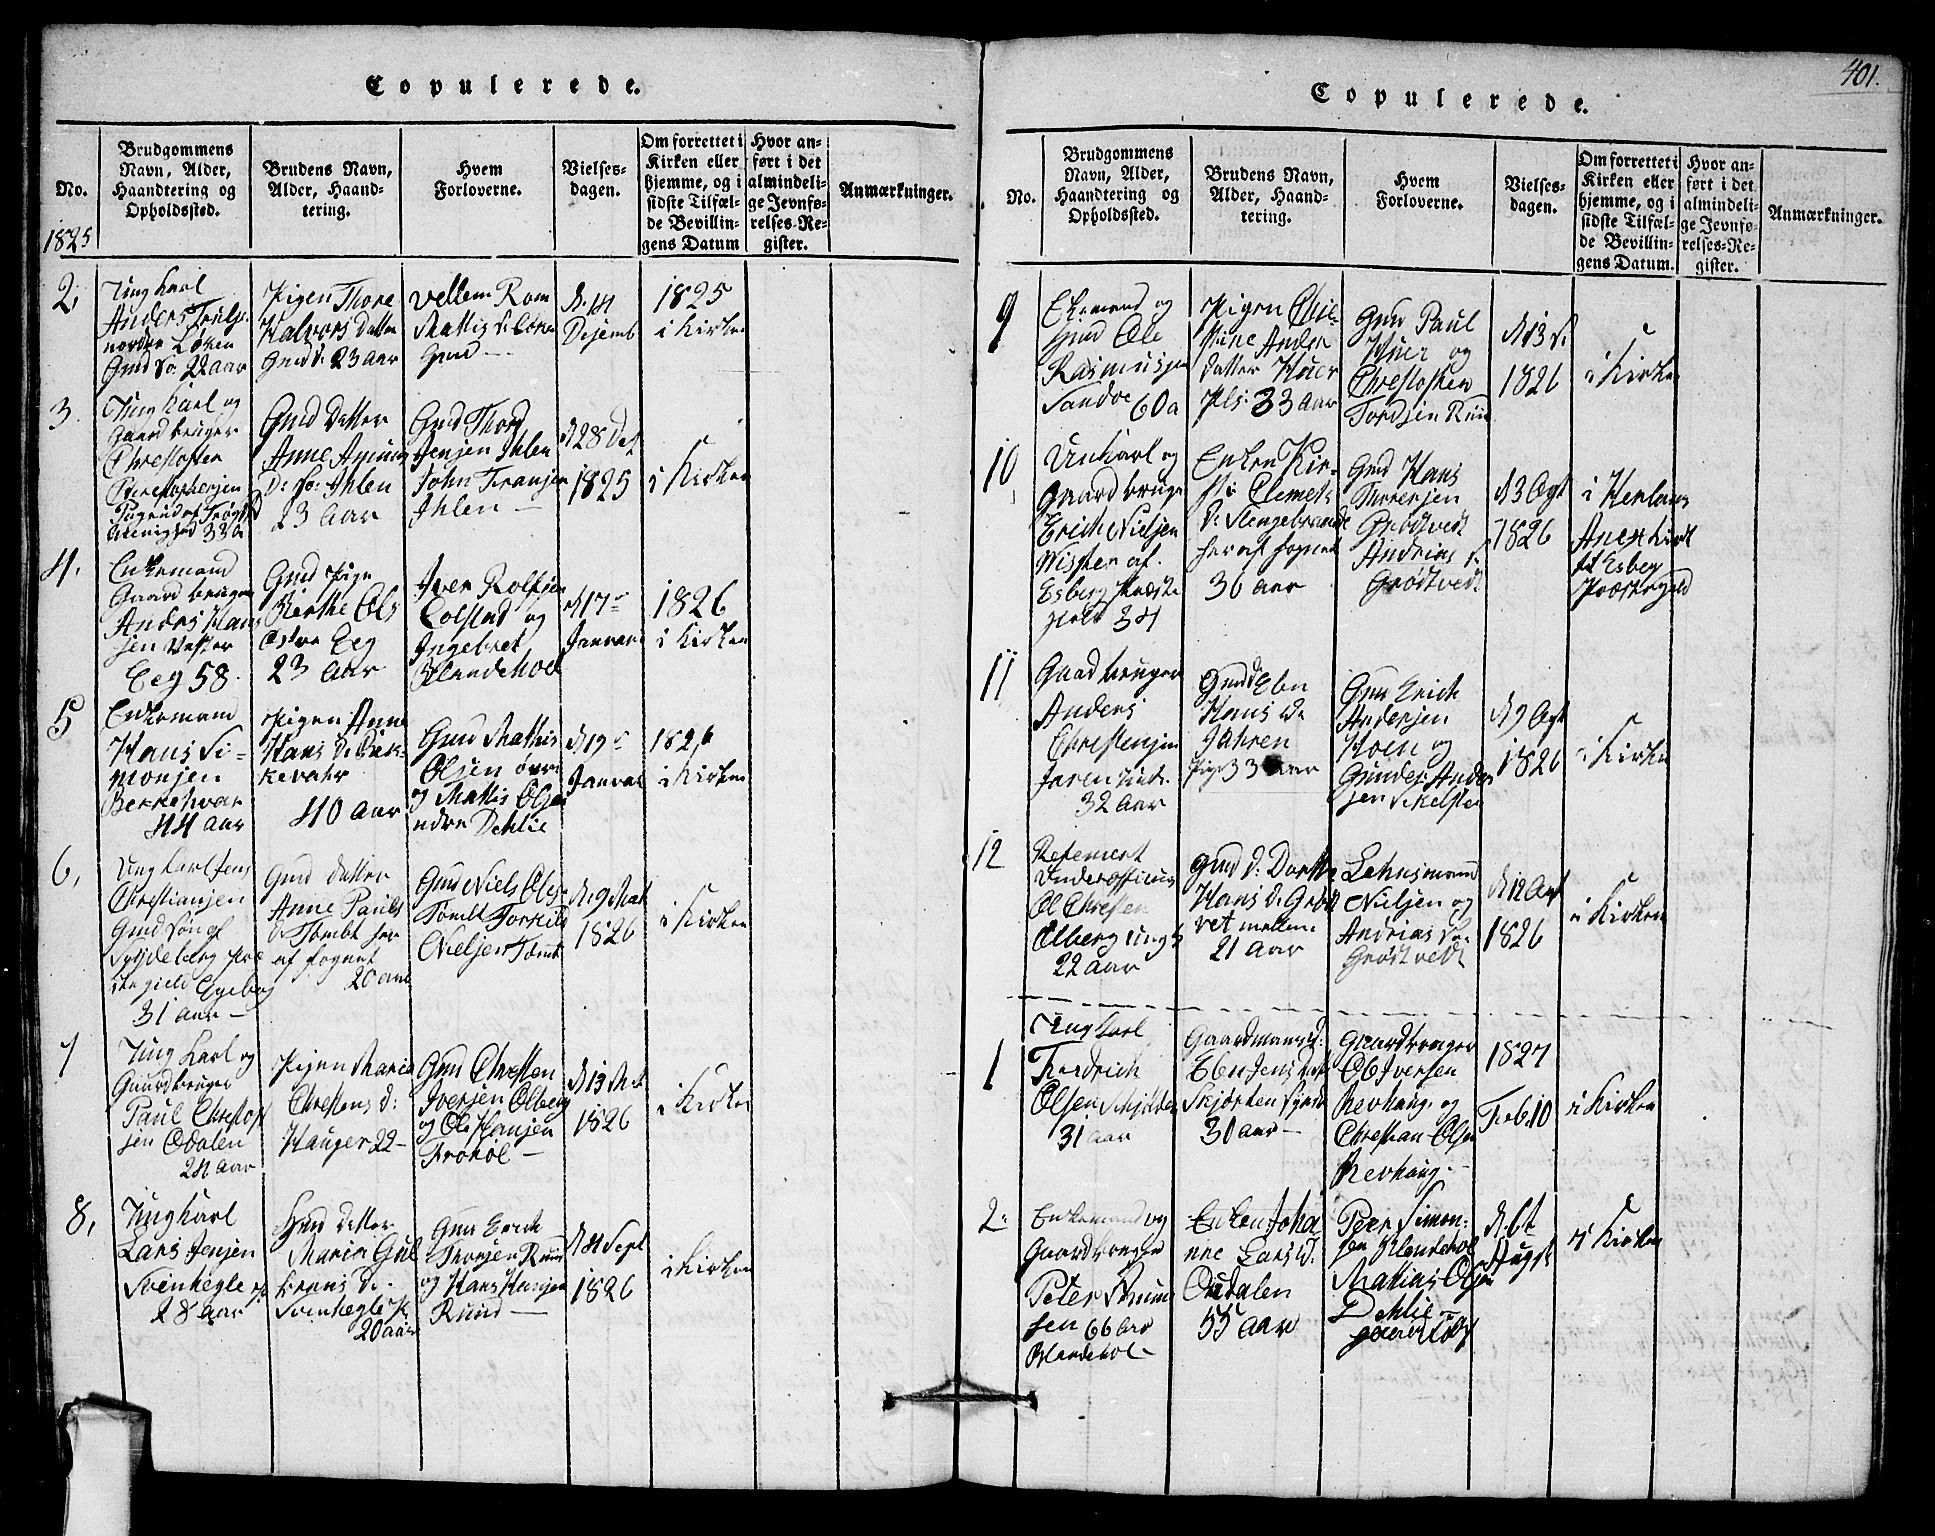 401.
Copulerede.
No.
Brudgommens
Navn, Alder,
Haandtering og
Opholdssted.
Brudens Navn,
Alder, Haand-
tering.
Hvem
Forloverne.
Vielses-
dagen.
Om forrettet i
Kirken eller
hjemme, og i
sidste Tilfæl-
de Bevillin-
gens Datum
Hvor an-
ført i det
almindeli-
ge Jevnfø-
relses-Re-
gister.
Anmærkninger.
1825
2,
Ung Karl
Anders Truls
nordre Løken
Gmd So: 22 aar
Pigen Thore
Halvors Datter
Gmd D: 23 aar
Vellem Rom
Mattis Løken
Gmd
D. 14
Desemb
1825
i Kirken
3.
Ung Karl og
Gaard bruger
Christofer
Christophersen
33 a
Gmd Datter
Anne Amun
D: So: Ihlen
23 aar
Gmd Thord
Jensen Ihlen
John Fransen
Ihlen
d 28 Des
1825
i Kirken
4.
Enkemand
Gaard bruger
Anders Hans
sen Vester
Eeg 58.
Gmd Pige
Berthe Ols
østre Eeg
23 aar
Iver Rolfsen
Colstad og
Ingebret
Blandehol
d 17
Januari
1826
i Kirken
5
Enkemand
Hans Si-
monsen
Berkevar
44 aar
Pigen Anne
Hans D. Birk-
kevahr
40 aar
Gmd Mathis
Olsen øvre
og Mattis Olsen
nedre Dehlie
d 19
Januar
1826
i Kirken
6,
Ung karl Jens
Christiansen
Gmd Søn af
Spydeberg Præ
ste gield
31 aar
Gmd Datter
Anne Pauls
D Tombt her
af sognet
20 aar
Gmd Niels Ols
Tomt Torkild
Nielsen Tomt
d. 9 Mat
1826
i Kirken
7
Ung karl og
Gaardbruger
Paul Christof
sen Odalen
24 aar
Pigen Maria
Christens d:
Hauger 22
Gmd Christen
Iversen Ølberg
og Ole Hansen
Frohol
d 13 Mat
1826
i Kirken
8,
Ung Karl
Lars Jensen
Svenkegle
28 aar
Gmd Datter
Maria Gul
brans D.
Svenkegle
20 aar
Gmd Erik
Thorsen Ruud
og Hans Hansen
Ruud
d 4 Sept
1826
i Kirken
Copulerede.
No.
Brudgommens
Navn, Alder,
Haandtering og
Opholdssted.
Brudens Navn,
Alder, Haand-
tering.
Hvem
Forloverne.
Vielses-
dagen.
Om forrettet i
Kirken eller
hjemme, og i
sidste Tilfæl-
de Bevillin-
gens Datum.
Hvor an-
ført i det
almindeli-
ge Jevnfø-
relses-Re-
gister.
Anmærkninger.
9
Ekemand og
Gmd Ole
Rasmusen
Sandoe
60 a
Pigen Chri-
stine Anders
datter Huer
Pls: 33 aar
Gmd Paul
Huer og
Christofer
Tordsen Ruu
d 13
1826
i Kirken
10
Unkarl og
gaard bruger
Erich Nielsen
Wister af
Esberg Præste
gield 34
Enken Kir-
sti Clemets
D: Slengebraade
her af sognet
36 aar
Gmd Hans
Thoresen
Grødtvedt
Andrias
Grødtvedt
d 3 Ogt
1826
i Henlans
Anex kirke
til Esberg
Præstegield
11
Gaard bruger
Anders
Christensen
Jaren
32 aar
Gmd d Eben
Hans D.
Jahren
Pige 33 aar
Gmd Erich
Andersen
Hoen og
Gunder Ander
sen Skelsten
d 9 Ogt
1826
i Kirken
12
Underofficer
Ol Christen
Ølberg
22 aar
Gmd D: Dorthe
Hans D Grødt
vet mellem
21 aar
Lehnsmand
Nielsen og
Andrias
Grødtvedt
d 12 Oct
1826
i Kirken
1
Ung karl
Fredrich
Olsen
31 aar
Gaardmans d:
Eben Jens Dat
Skjorten
30 aar
Gaardbruger
Ole Iversen
Revhaug og
Christian Olsen
Revhaug.
1827
Feb. 10
i Kirken
2.
Enkemand og
Gaardbruger
Peter Simon
sen 66 aar
Blandehol
Enken Joha
nne Lars D.
Ou dalen
55 aar
Peer Simon:
sen Blandehol
Mathias Olsen
Dehlie
d. 6t
Augst
i Kirken